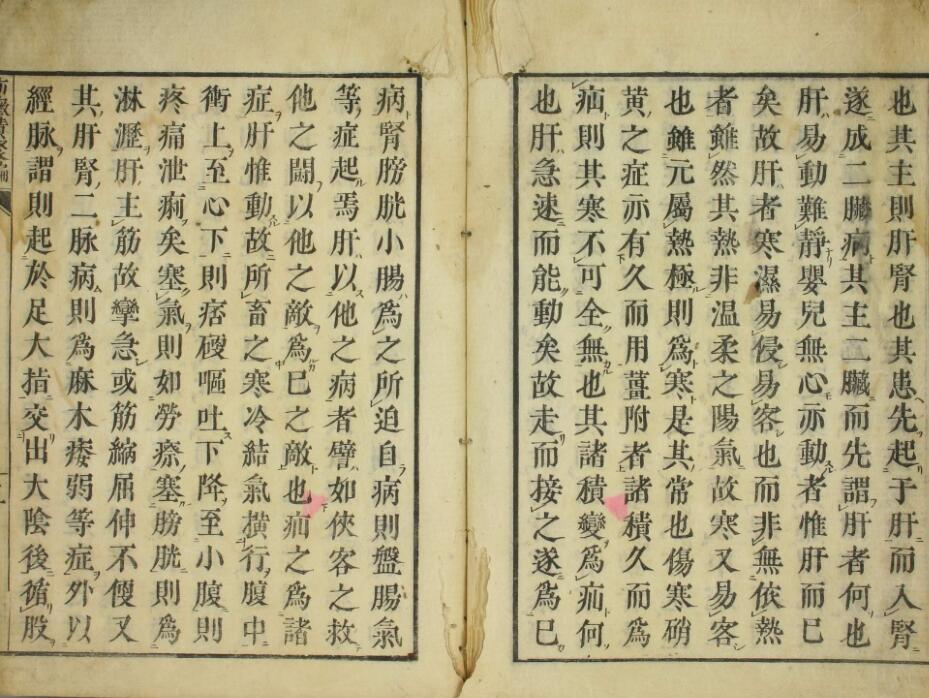 也其主則肝腎也其患先起于肝而入腎
遂成二臟病其主二臟而先謂肝者何也
肝易動難靜嬰兒無心亦動者惟肝而已
矣故肝者寒濕易侵易客也而非無依熱
者雖然其熱非温柔之陽氣故寒又易客
也雖元屬熱極則為寒是其常也傷寒硝
黄之症亦有久而用薑附者諸積久而為
疝則其寒不可全無也其諸積變為疝何
也肝急速而能動矣故走而接之遂為已
病腎膀胱小腸為之所迫自病則盤腸氣
等症起焉肝以他之病者譬如俠客之救
他之鬪以他之敵為已之敵也疝之為諸
症肝惟動故所畜之寒冷結氣橫行腹中
衝上至心下則痞硬嘔吐下降至小腹則
疼痛泄痢矣塞氣則如勞瘵塞膀胱則為
淋瀝肝主筋故攣急或筋縮屈伸不便又
其肝腎二脉病則為麻木痿弱等症外以
經脉謂則起於足大指交出大陰後循股